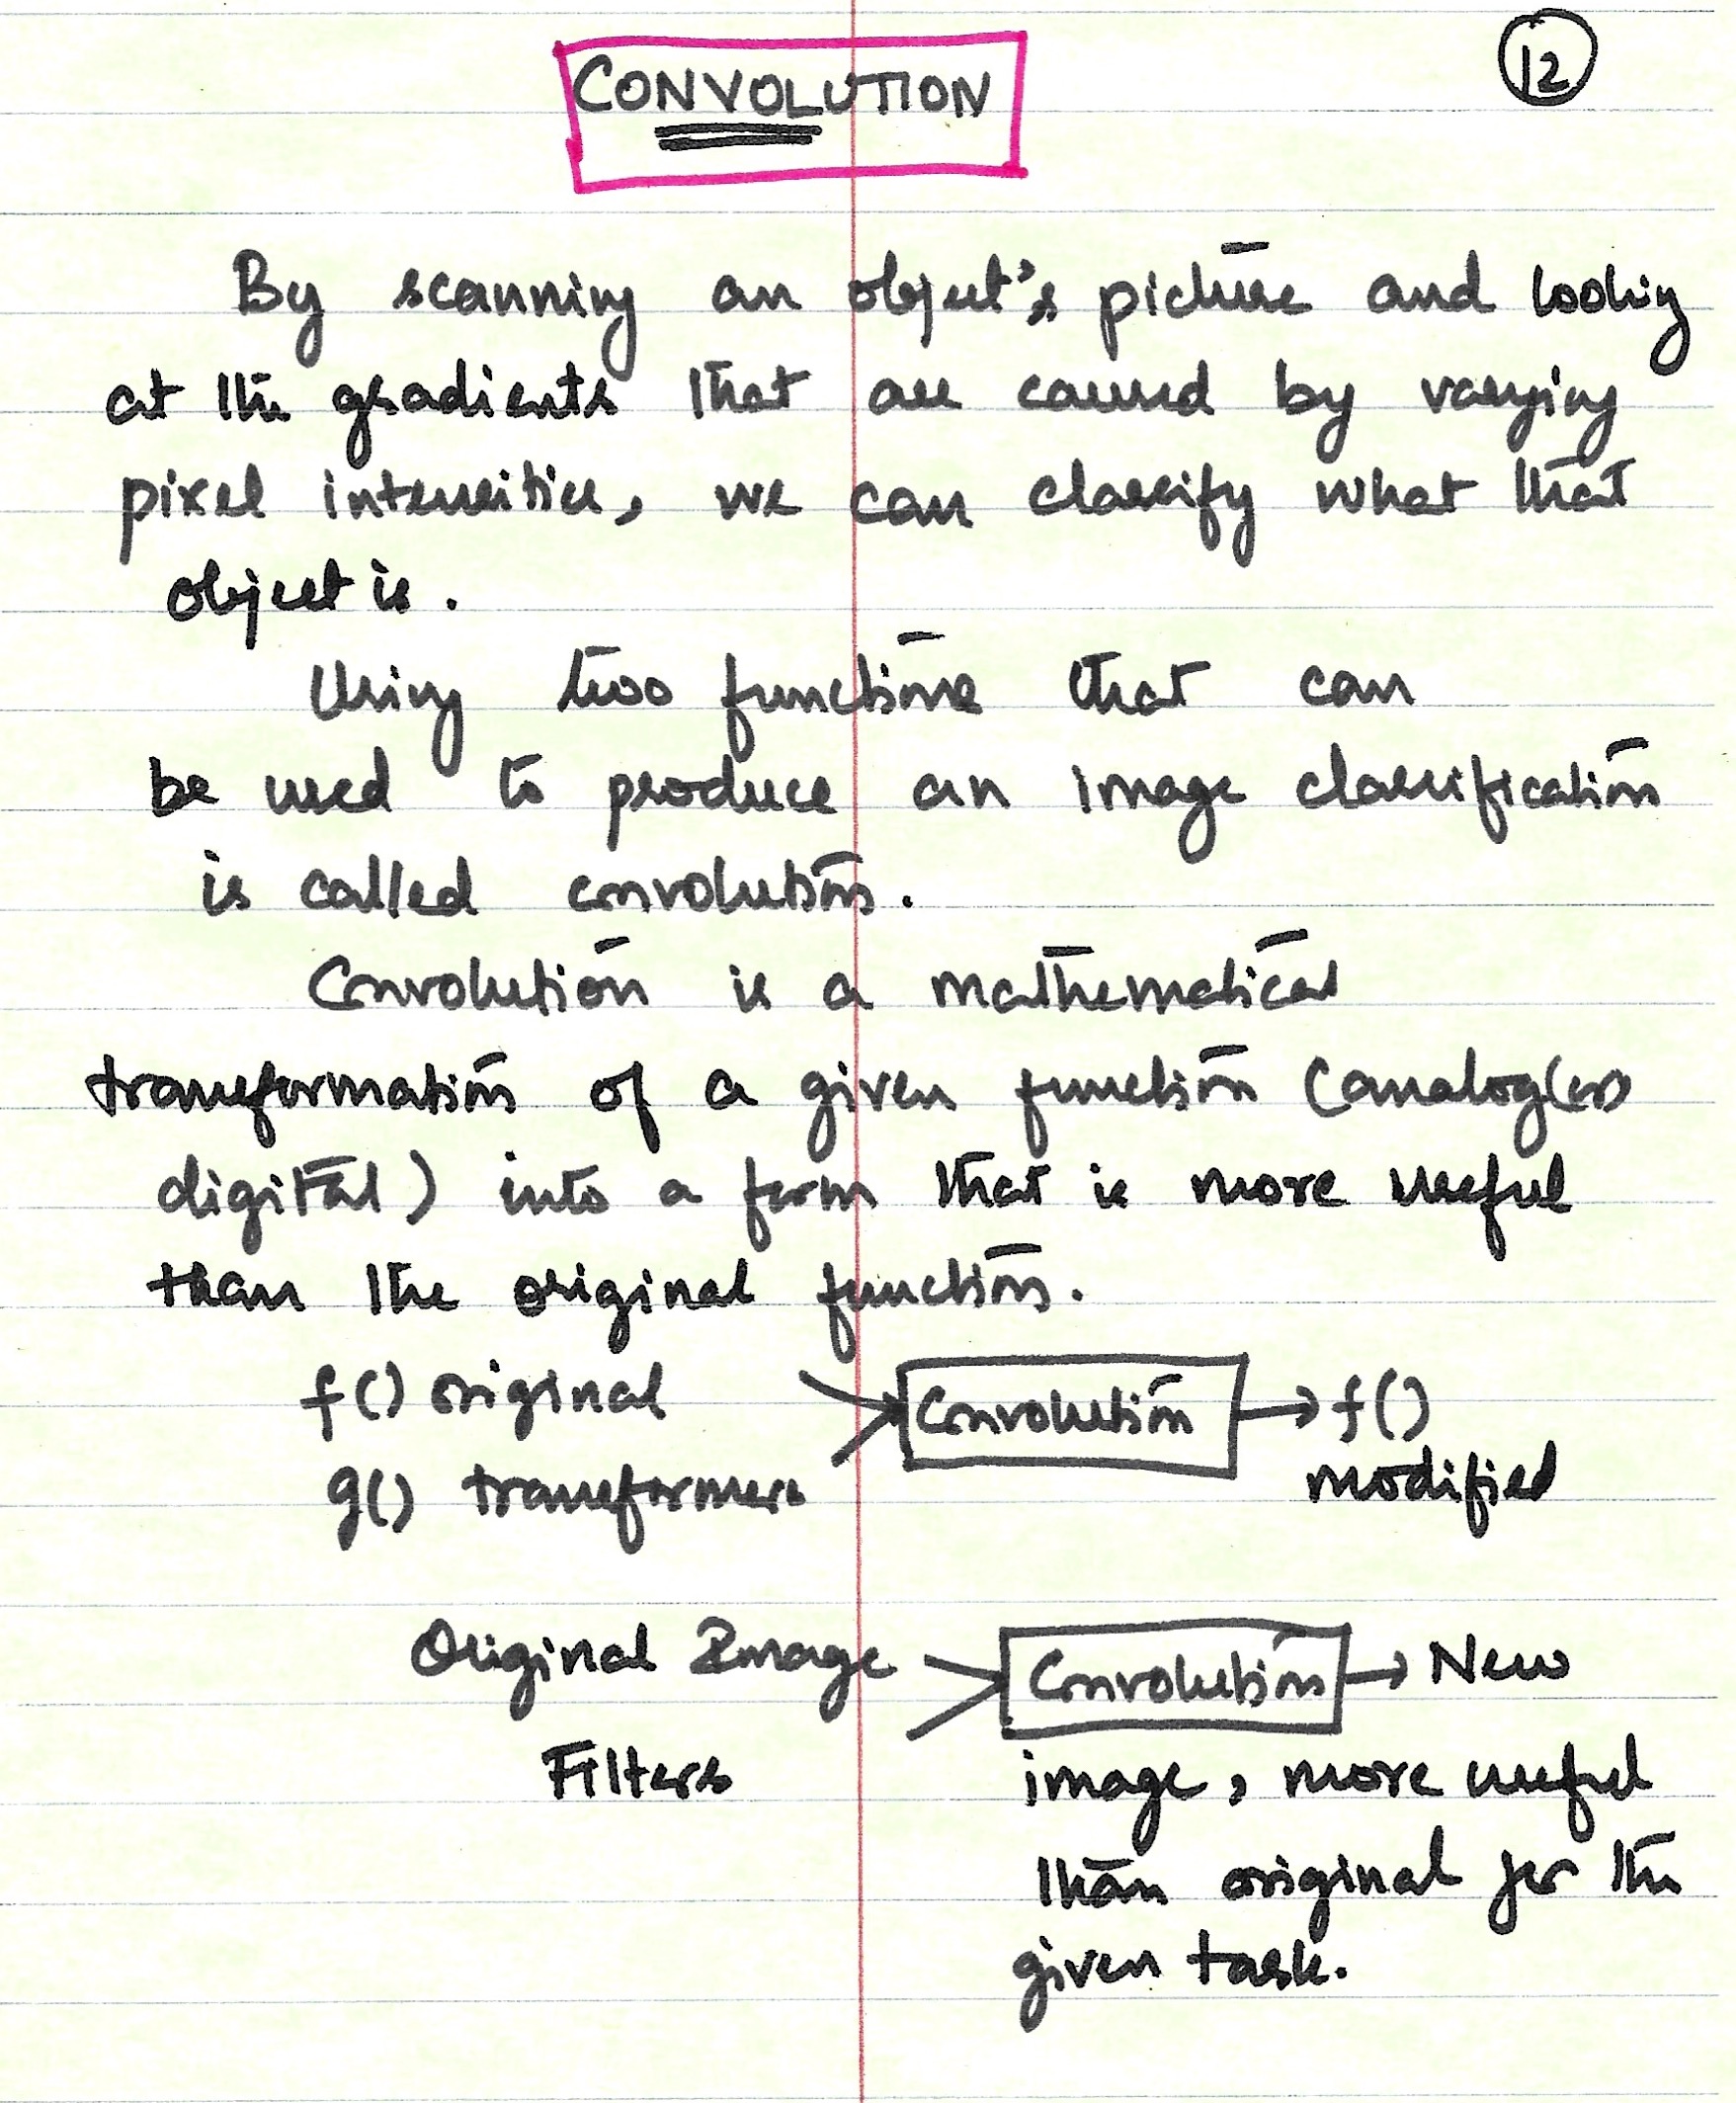 CONVOLUTION
12
By scanning an object's picture and looking
at the gradients that are caused by varying
pixel intensities, we can classify what that
object is.
Using two functions that can
be used to produce an image classification
is called convolution.
Convolution is a mathematical
transformation of a given function (analog(or)
digital) into a form that is more useful
than the original function.
f() original
Convolution → f()
g() transformers
modified
Original Image
Convolution → New
Filters
image, more useful
than original for the
given task.